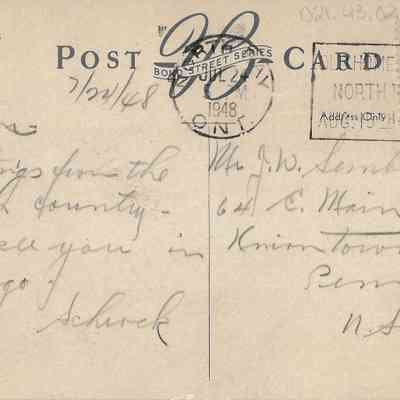 021.43.02
POST CARD
BOND STREET SERIES
7/24/48
JUL 24
PM
1948
ONT.
NORTH B
AUG. 1
Address Only
ings from the
country -
see you in
go!
Schrock
Mr J.W.
64 E. Main
Penn
U.S.